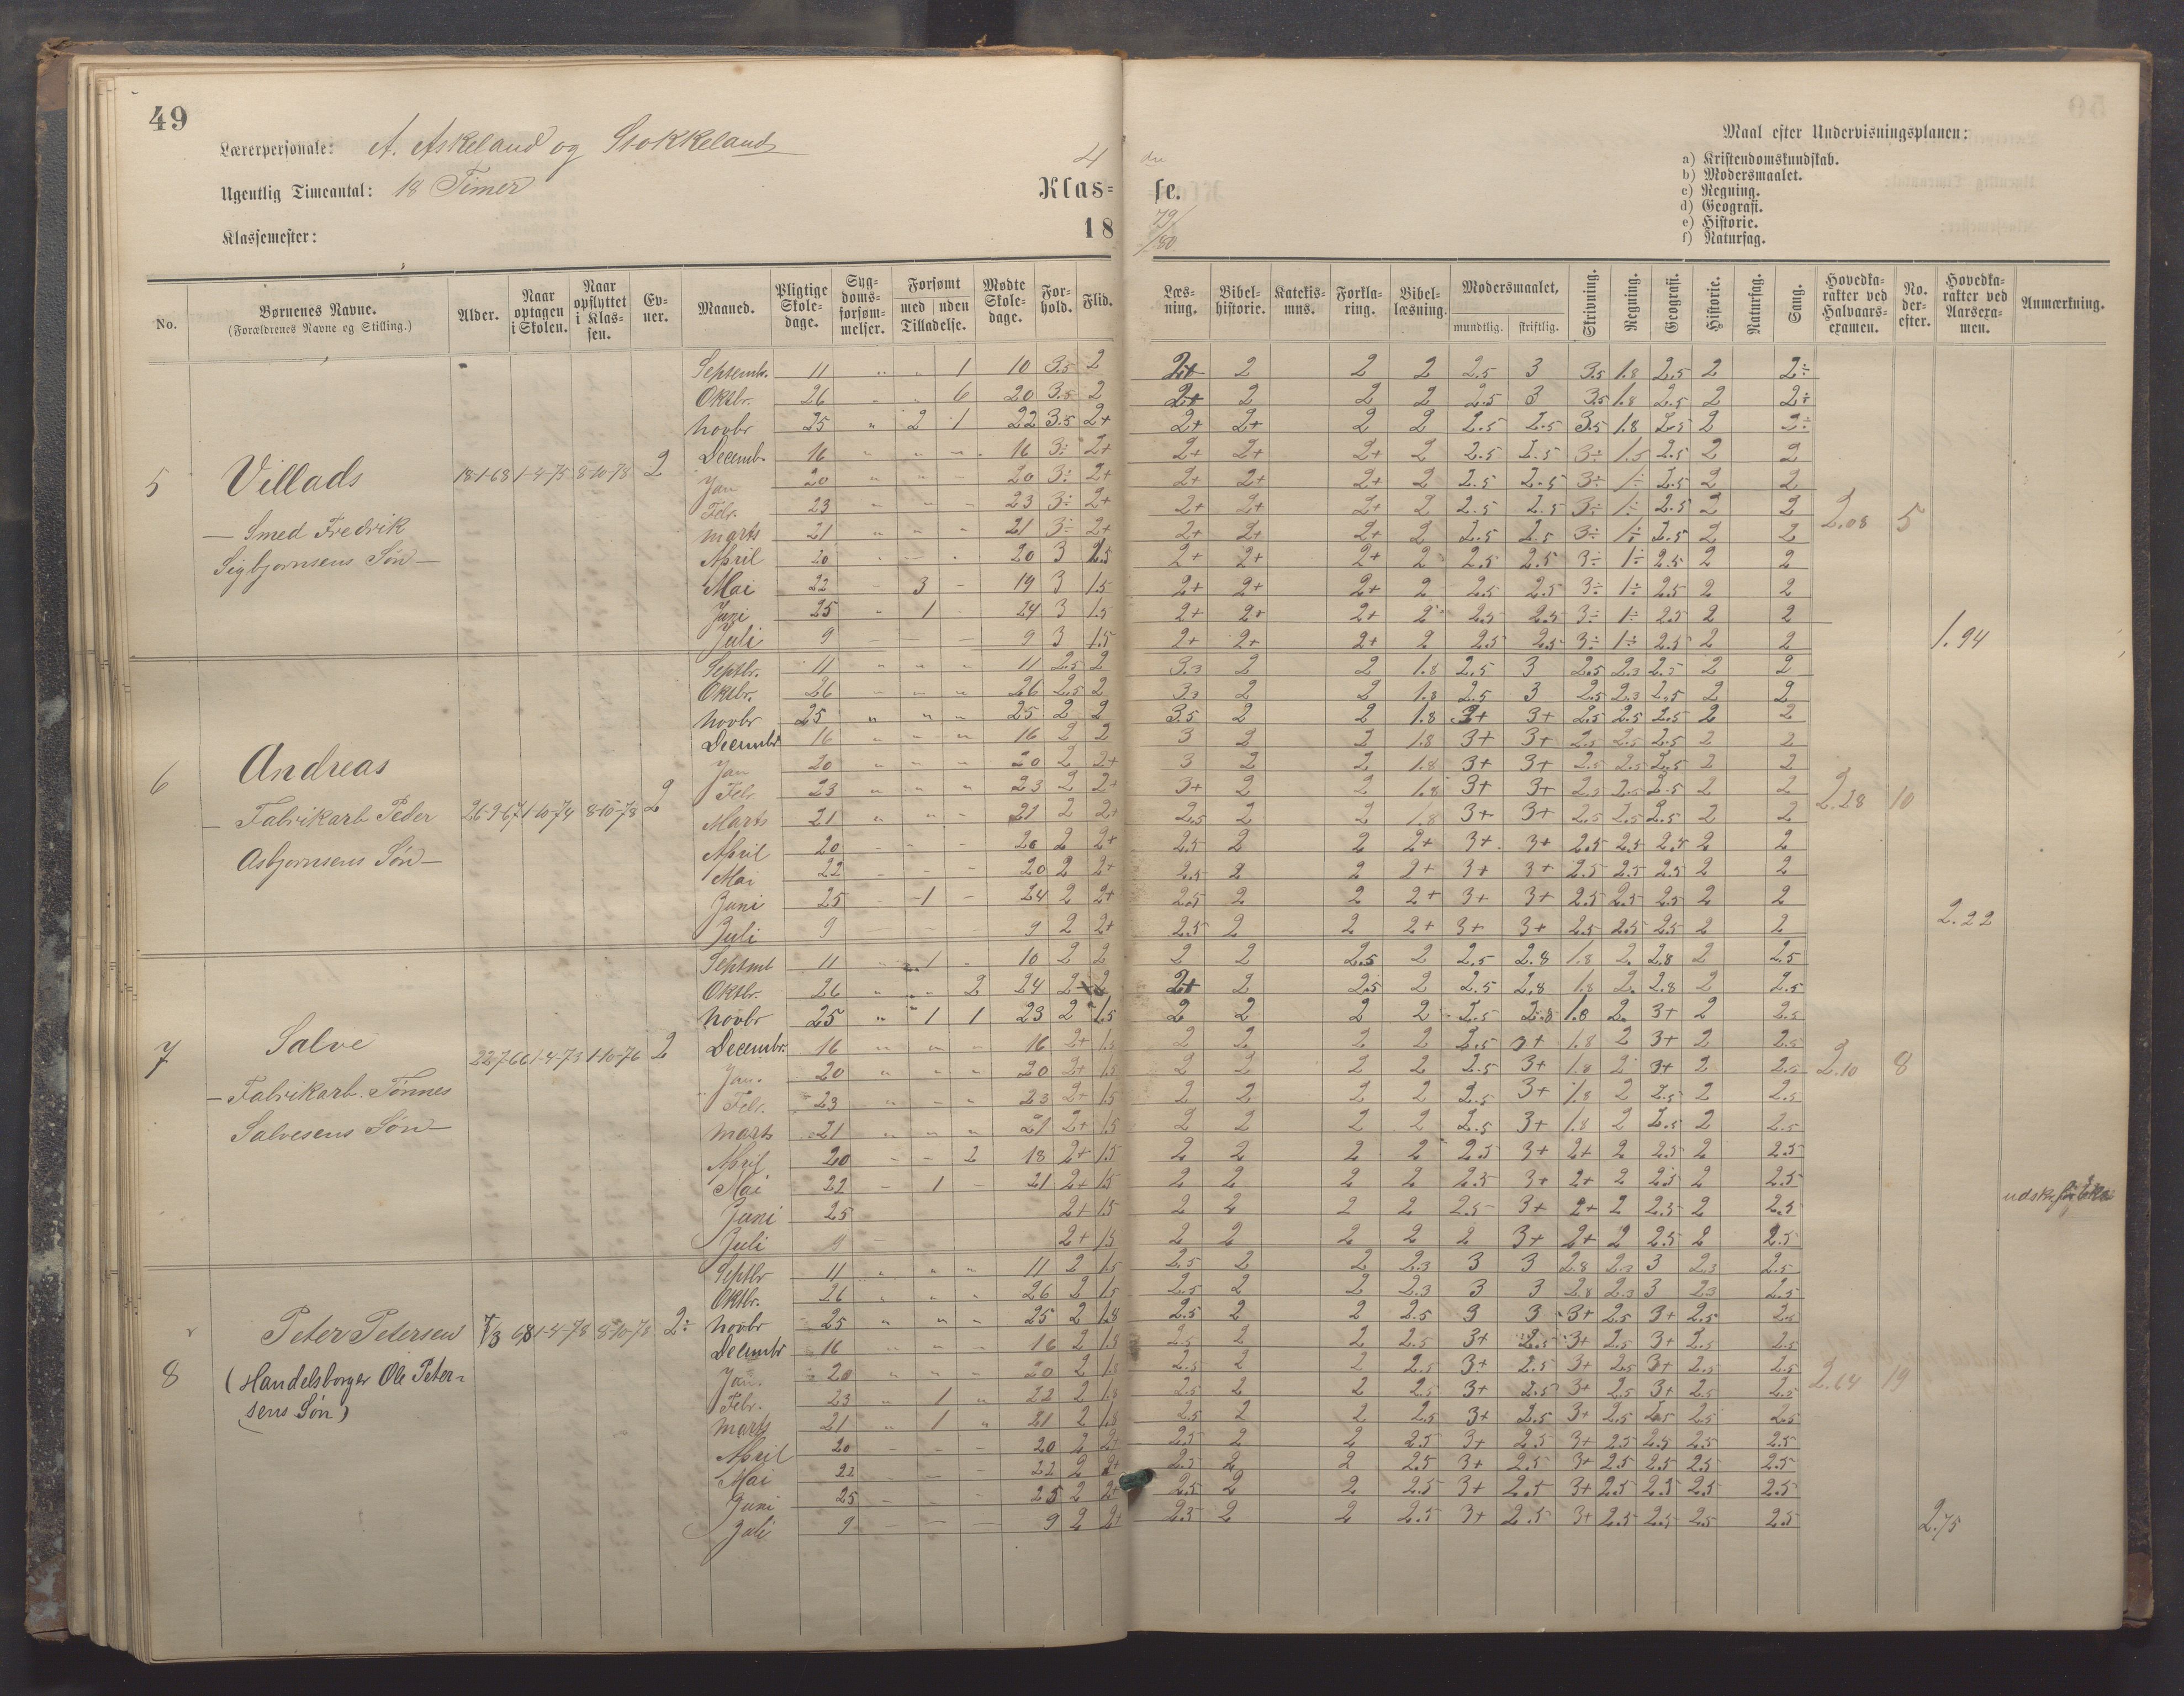 49
Lærerpersonale: A. Askeland og Stokkeland
Ugentlig Timeantal: 18 Timer
Klassemester:
4 de
Klas= se.
18 79/80
Maal efter Undervisningsplanen:
a) Kristendomskundskab.
b) Modersmaalet.
c) Regning.
d) Geografi.
e) Historie.
f) Naturfag.
No. | Børnenes Navne. (Forældrenes Navne og Stilling.) | Alder. | Naar optagen i Skolen. | Naar opflyttet i Klassen. | Evner. | Maaned. | Pligtige Skoledage. | Sygdomsforsømmelser. | Forsømt med uden Tilladelse. | Mødte Skoledage. | Forhold. | Flid. | Læsning. | Bibelhistorie. | Katekismus. | Forklaring. | Bibellæsning. | Modersmaalet, mundtlig. skriftlig. | Skrivning. | Regning. | Geografi. | Historie. | Naturfag. | Sang. | Hovedkarakter ved Halvaarsexamen. | No. derefter. | Hovedkarakter ved Aarsexamen. | Anmærkning.
5 Villads 18-1-68 1-4-75 8-10-78 2
— Smed Fredrik
Sigbjørnsens Søn —
Septembr. 11 " " 1 10 3.5 2 2+ 2 2 2 2.5 3 3.5 1.8 2.5 2 2÷
Oktbr. 26 " " 6 20 3.5 2 2+ 2 2 2 2.5 3 3.5 1.8 2.5 2 2÷
Novbr 25 " 2 1 22 3.5 2+ 2+ 2+ 2 2 2.5 2.5 3.5 1.8 2.5 2 2÷
Decemb. 16 " " " 16 3÷ 2+ 2+ 2+ 2+ 2 2.5 2.5 3÷ 1.5 2.5 2 2
Jan 20 " " " 20 3÷ 2+ 2+ 2+ 2+ 2 2.5 2.5 3÷ 1÷ 2.5 2 2
Febr. 23 " " " 23 3÷ 2+ 2+ 2+ 2+ 2 2.5 2.5 3÷ 1÷ 2.5 2 2 2.08 5
Marts 21 " " " 21 3÷ 2+ 2+ 2+ 2+ 2 2.5 2.5 3÷ 1÷ 2.5 2 2
April 20 - - - 20 3 1.5 2+ 2+ 2+ 2 2.5 2.5 3÷ 1÷ 2.5 2 2
Mai 22 - 3 - 19 3 1.5 2+ 2+ 2+ 2 2.5 2.5 3÷ 1÷ 2.5 2 2
Juni 25 " 1 - 24 3 1.5 2+ 2+ 2+ 2 2.5 2.5 3÷ 1÷ 2.5 2 2
Juli 9 - - - 9 3 1.5 2+ 2+ 2+ 2 2.5 2.5 3÷ 1÷ 2.5 2 2 1.94
6 Andreas 26-9-67 1-10-74 8-10-78 2
— Fabrikarb Peder
Asbjørnsens Søn —
Septbr. 11 " " " 11 2.5 2 3.3 2 2 1.8 2.5 3 2.5 2.3 2.5 2 2
Oktbr. 26 " " " 26 2.5 2 3.3 2 2 1.8 2.5 3 2.5 2.3 2.5 2 2
Novbr 25 " " " 25 2 2 3.5 2 2 1.8 3+ 3+ 2.5 2.5 2.5 2 2
Decembr 16 " " " 16 2 2 3 2 2 1.8 3+ 3+ 2.5 2.5 2.5 2 2
Jan 20 " " " 20 2 2+ 3 2 2 1.8 3+ 3+ 2.5 2.5 2.5 2 2
Febr 23 " " " 23 2 2+ 3+ 2 2 1.8 3+ 3+ 2.5 2.5 2.5 2 2 2.28 10
Marts 21 " " " 21 2 2+ 2.5 2 2 1.8 3+ 3+ 2.5 2.5 2.5 2 2
April 20 - - - 20 2 2+ 2.5 2 2 2+ 3+ 3+ 2.5 2.5 2.5 2 2
Mai 22 - - - 20 2 2+ 2.5 2 2 2+ 3+ 3+ 2.5 2.5 2.5 2 2
Juni 25 - 1 - 24 2 2+ 2.5 2 2 2+ 3+ 3+ 2.5 2.5 2.5 2 2
Juli 9 - - - 9 2 2+ 2.5 2 2 2+ 3+ 3+ 2.5 2.5 2.5 2 2 2.22
7 Salve 22-7-66 1-4-73 1-10-76 2
— Fabrikarb. Tønnes
Salvesens Søn —
Septmb 11 " 1 " 10 2 2 2 2 2.5 2 2.5 2.8 1.8 2 2.8 2 2.5
Oktbr. 26 " " 2 24 2 2 2+ 2 2.5 2 2.5 2.8 1.8 2 2.8 2 2.5
Novbr 25 " 1 1 23 2 1.5 2 2 2 2 2.5 2.8 1.8 2 3+ 2 2.5
Decembr. 16 " " " 16 2+ 1.5 2 2 2 2 2.5 3+ 1.8 2 3+ 2 2.5
Jan. 20 " " " 20 2+ 1.5 2 2 2 2 2.5 3+ 1.8 2 3+ 2 2.5 2.10 8
Febr. 23 " " " 23 2+ 1.5 2 2 2 2 2.5 3+ 1.8 2 2.5 2 2.5
Marts 21 " " " 21 2+ 1.5 2 2 2 2 2.5 3+ 1.8 2 2.5 2 2.5
April 20 - - 2 18 2+ 1.5 2 2 2 2 2.5 3+ 2+ 2 2.5 2 2.5
Mai 22 - 1 - 21 2+ 1.5 2 2 2 2 2.5 3+ 2+ 2 2.5 2 2.5
Juni 25 2+ 1.5 2 2 2 2 2.5 3+ 2+ 2 2.5 2 2.5 udsk.
Juli 9 2+ 1.5 2 2 2 2 2 3+ 2+ 2 2.5 2 2.5
8 Peter Petersen 7/3 68 1-4-78 8-10-78 2÷
(Handelsborger Ole Peter=
sens Søn)
Septbr 11 " " " 11 2 1.5 2.5 2 2 2.3 3 3 2.8 2.3 3 2.3 2.5
Oktbr. 26 " " " 26 2 1.5 2.5 2 2 2.3 3 3 2.8 2.3 3 2.3 2.5
Novbr 25 " " " 25 2 1.8 2.5 2 2 2.5 3 3 3+ 2.5 3+ 2.5 2.5
Decembr 16 " " " 16 2 1.8 2.5 2 2 2.5 3+ 2.5 3+ 2.5 3+ 2.5 2.5
Jan. 20 " " " 20 2 1.8 2.5 2 2 2.5 3+ 2.5 3+ 2.5 3+ 2.5 2.5 2.64 19
Febr. 23 " 1 " 22 2 1.8 2.5 2 2 2.5 3+ 2.5 3+ 2.5 3+ 2.5 2.5
Marts 21 " 1 " 21 2 1.8 2.5 2 2 2.5 3+ 2.5 3+ 2.5 2.5 2.5 2.5
April 20 - - - 20 2 2+ 2.5 2 2 2.5 3+ 2.5 3+ 2.5 2.5 2.5 2.5
Mai 22 - - - 22 2 2+ 2.5 2 2 2.5 3+ 2.5 3+ 2.5 2.5 2.5 2.5
Juni 25 - - - 25 2 2+ 2.5 2 2 2.5 3+ 2.5 3+ 2.5 2.5 2.5 2.5
Juli 9 - - - 9 2 2+ 2.5 2 2 2.5 3+ 2.5 3+ 2.5 2.5 2.5 2.5 2.75